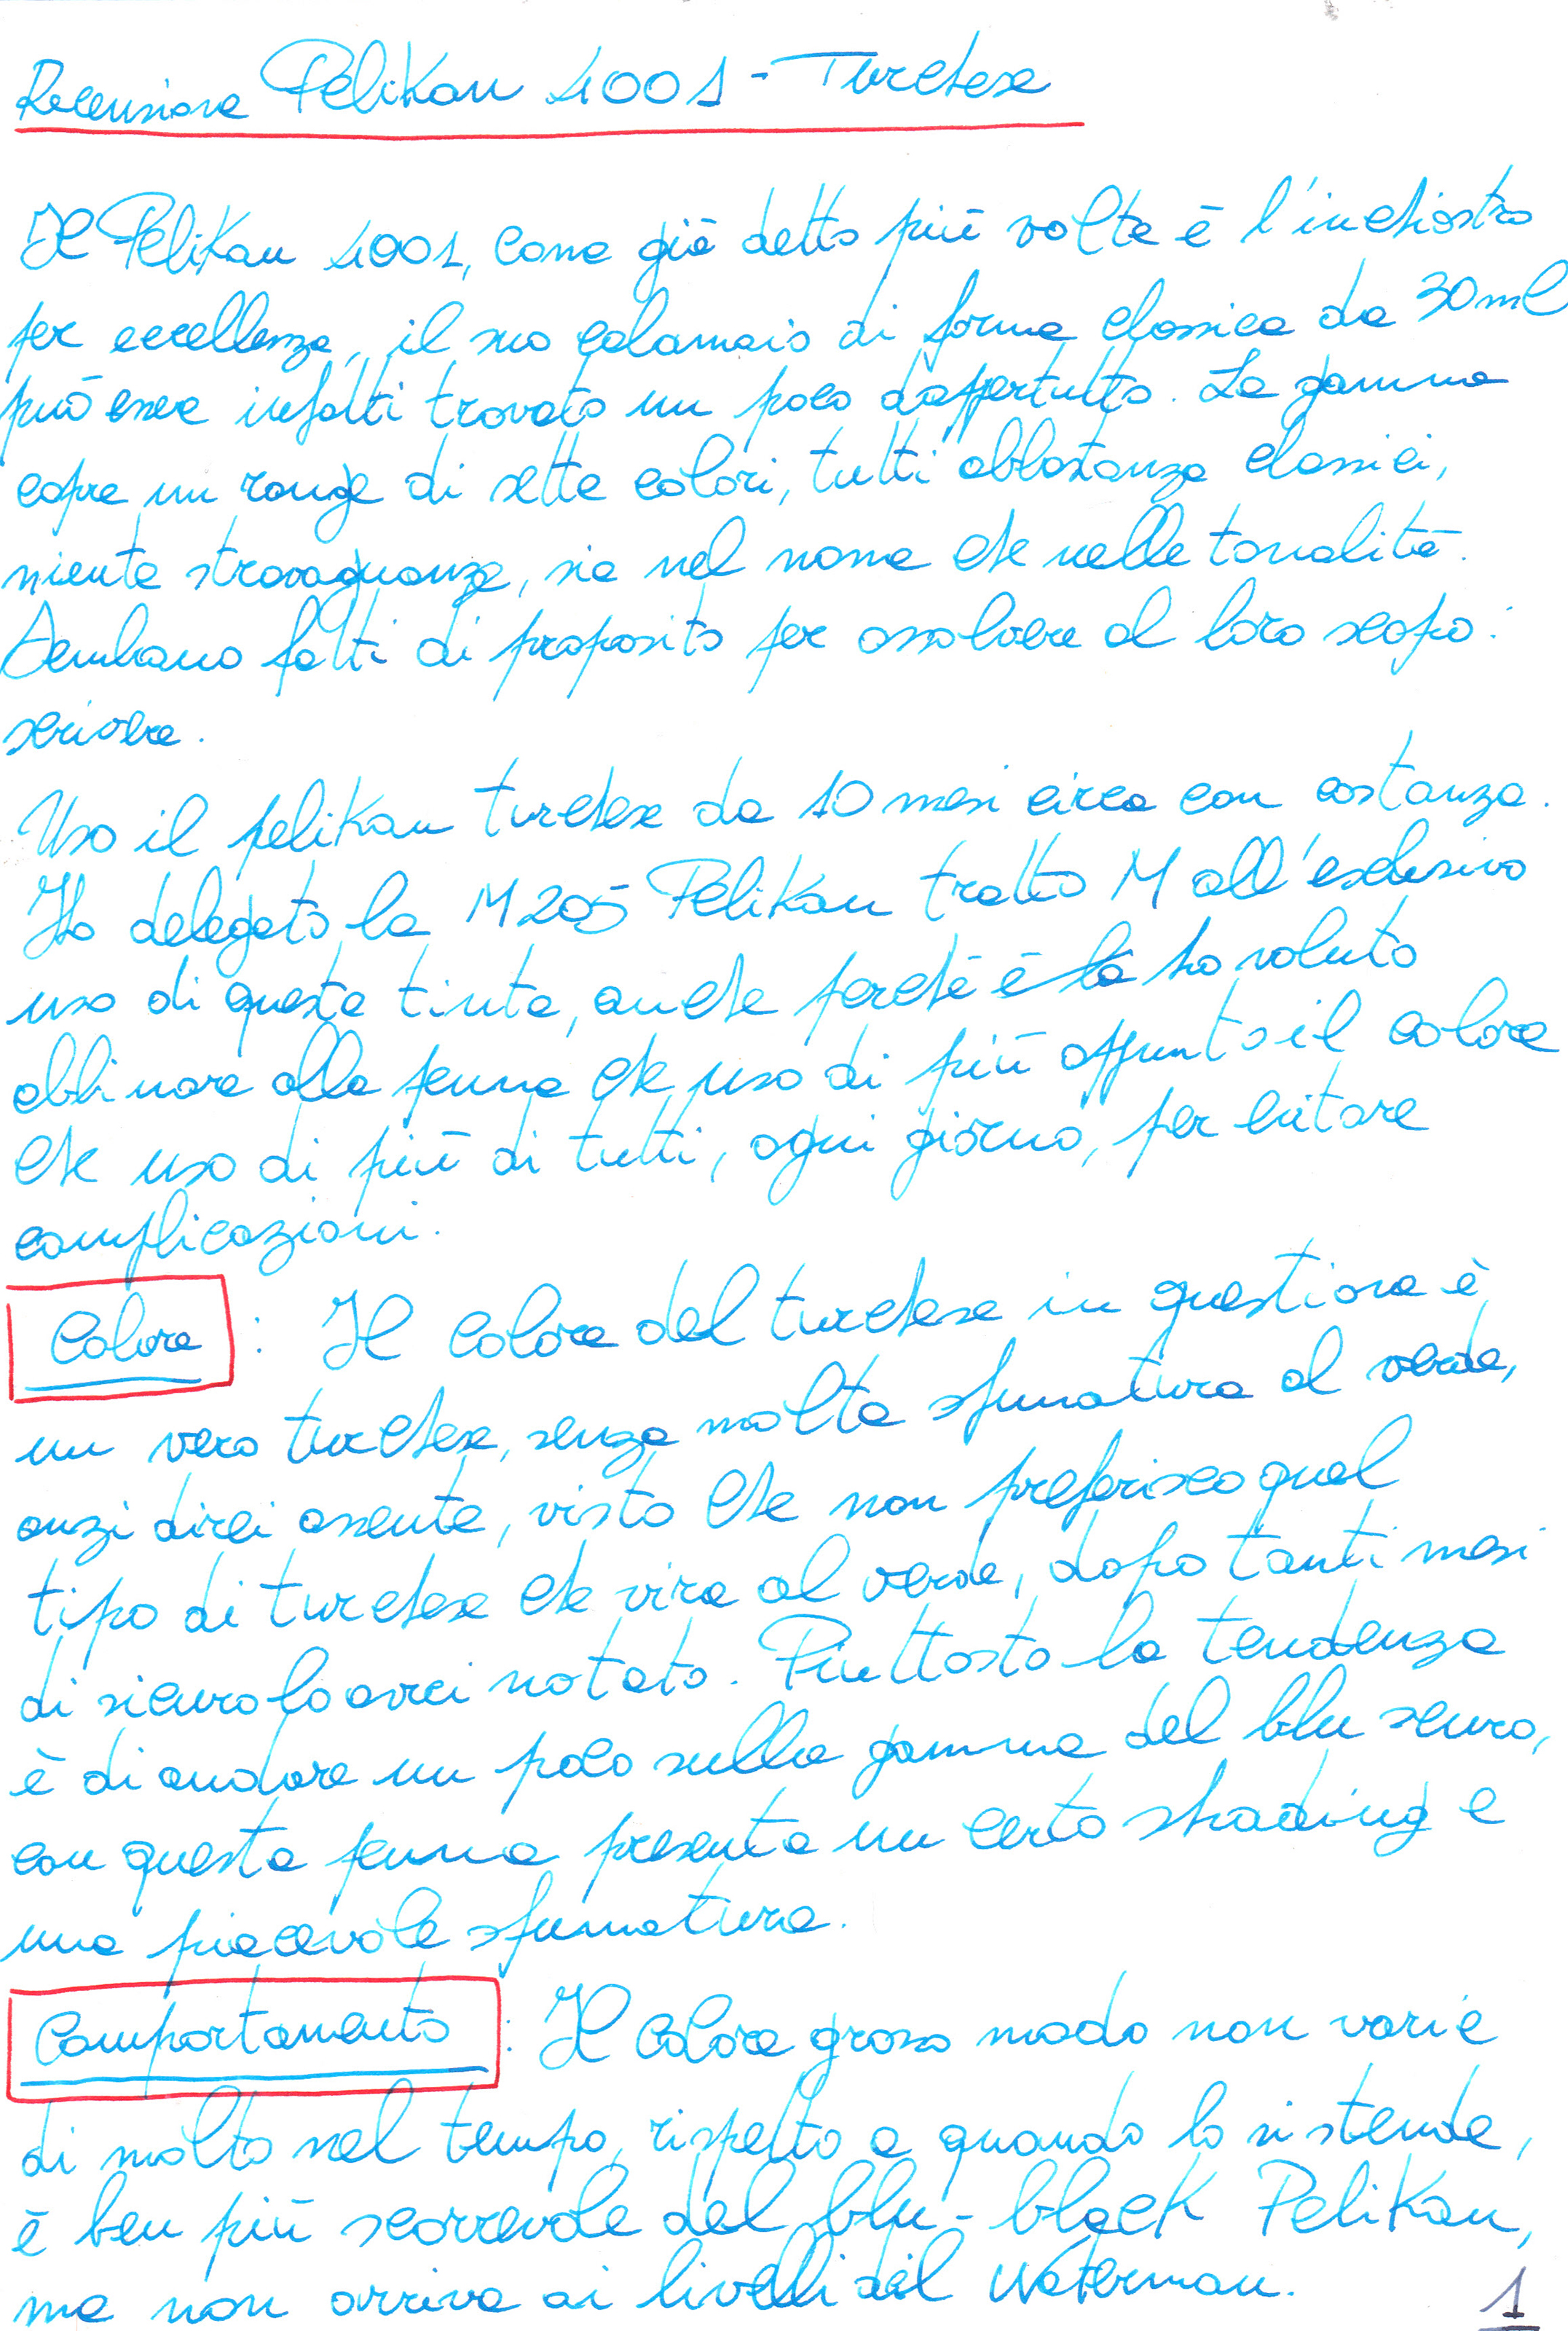 Recensione Pelikan 4001 - Turchese
Il Pelikan 4001, come già detto più volte è l'inchiostro
per eccellenza, il suo calamaio di forma classica da 30ml
può essere infatti trovato un poco dappertutto. La gamma
copre un range di sette colori, tutti abbastanza classici,
niente stravaganze, sia nel nome che nelle tonalità.
Sembrano fatti di proposito per assolvere al loro scopo:
scrivere.
Uso il pelikan turchese da 10 mesi circa con costanza.
Ho delegato la M205 Pelikan tratto M all'esclusivo
uso di questa tinta, anche perché è la ho voluto
abbinare alla penna che uso di più appunto il colore
che uso di più di tutti, ogni giorno, per evitare
complicazioni.
Colore : Il colore del turchese in questione è
un vero turchese, senza molta sfumatura al verde,
anzi direi assente, visto che non preferisco quel
tipo di turchese che vira al verde, dopo tanti mesi
di sicuro lo avrei notato. Piuttosto la tendenza
è di andare un poco sulla gamma del blu scuro,
con questa penna presenta un certo shading e
una piacevole sfumatura.
Comportamento : Il colore grosso modo non varia
di molto nel tempo, rispetto a quando lo si stende,
è ben più scorrevole del blu-black Pelikan,
ma non arriva ai livelli del Waterman.
1